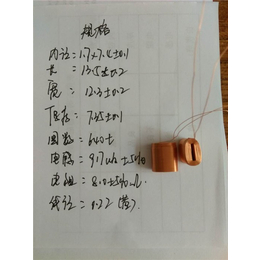 规格
内径=1.7×7.4±0.1
长=13.5±0.2
宽=12.3±0.2
厚=7.35±0.1
圈数=640t
电感=917uh±5%
电阻=8.0±5%Ω
线径=0.22